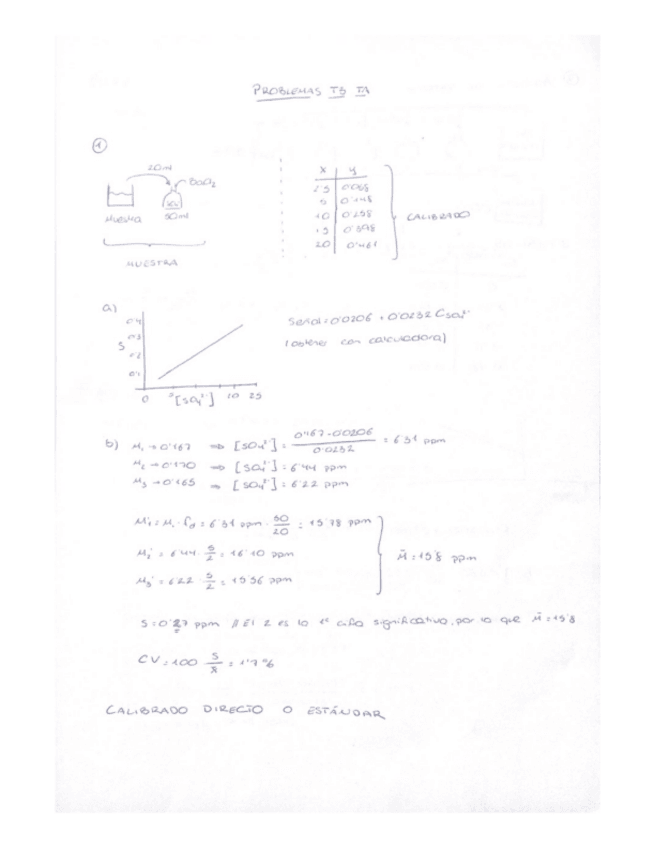 PROBLEMAS T3 TA
1
20ml
BaCl₂
Muestra
50ml
MUESTRA
x y
2'5 0'068
5 0'148
10 0'258
15 0'398
20 0'461
CALIBRADO
a)
S
0'4
0'3
0'2
0'1
0 5 [SO₄²⁻] 10 25
Señal = 0'0206 + 0'0232 C SO₄²⁻
(obtener con calculadora)
b) M₁ → 0'167 ⇒ [SO₄²⁻] = (0'167 - 0'0206) / 0'0232 = 6'31 ppm
M₂ → 0'170 ⇒ [SO₄²⁻] = 6'44 ppm
M₃ → 0'165 ⇒ [SO₄²⁻] = 6'22 ppm
M₁' = M₁ · fd = 6'31 ppm · 50/20 = 15'78 ppm
M₂' = 6'44 · 5/2 = 16'10 ppm
M₃' = 6'22 · 5/2 = 15'56 ppm
M̄ = 15'8 ppm
S = 0'27 ppm // El 2 es la 1ª cifra significativa, por lo que M̄ = 15'8
CV = 100 S/x̄ = 1'7 %
CALIBRADO DIRECTO O ESTÁNDAR